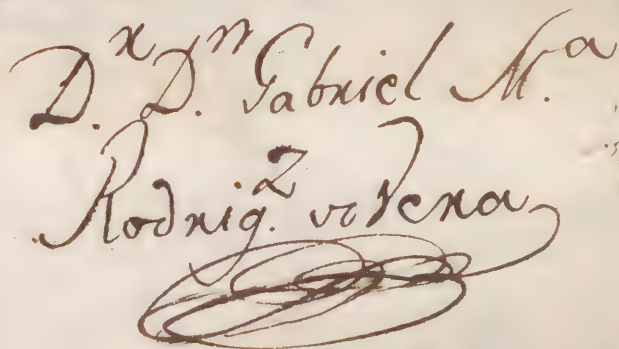 D.ʳ D.ⁿ Gabriel M.ᵃ
Rodrig.ᶻ de Vera